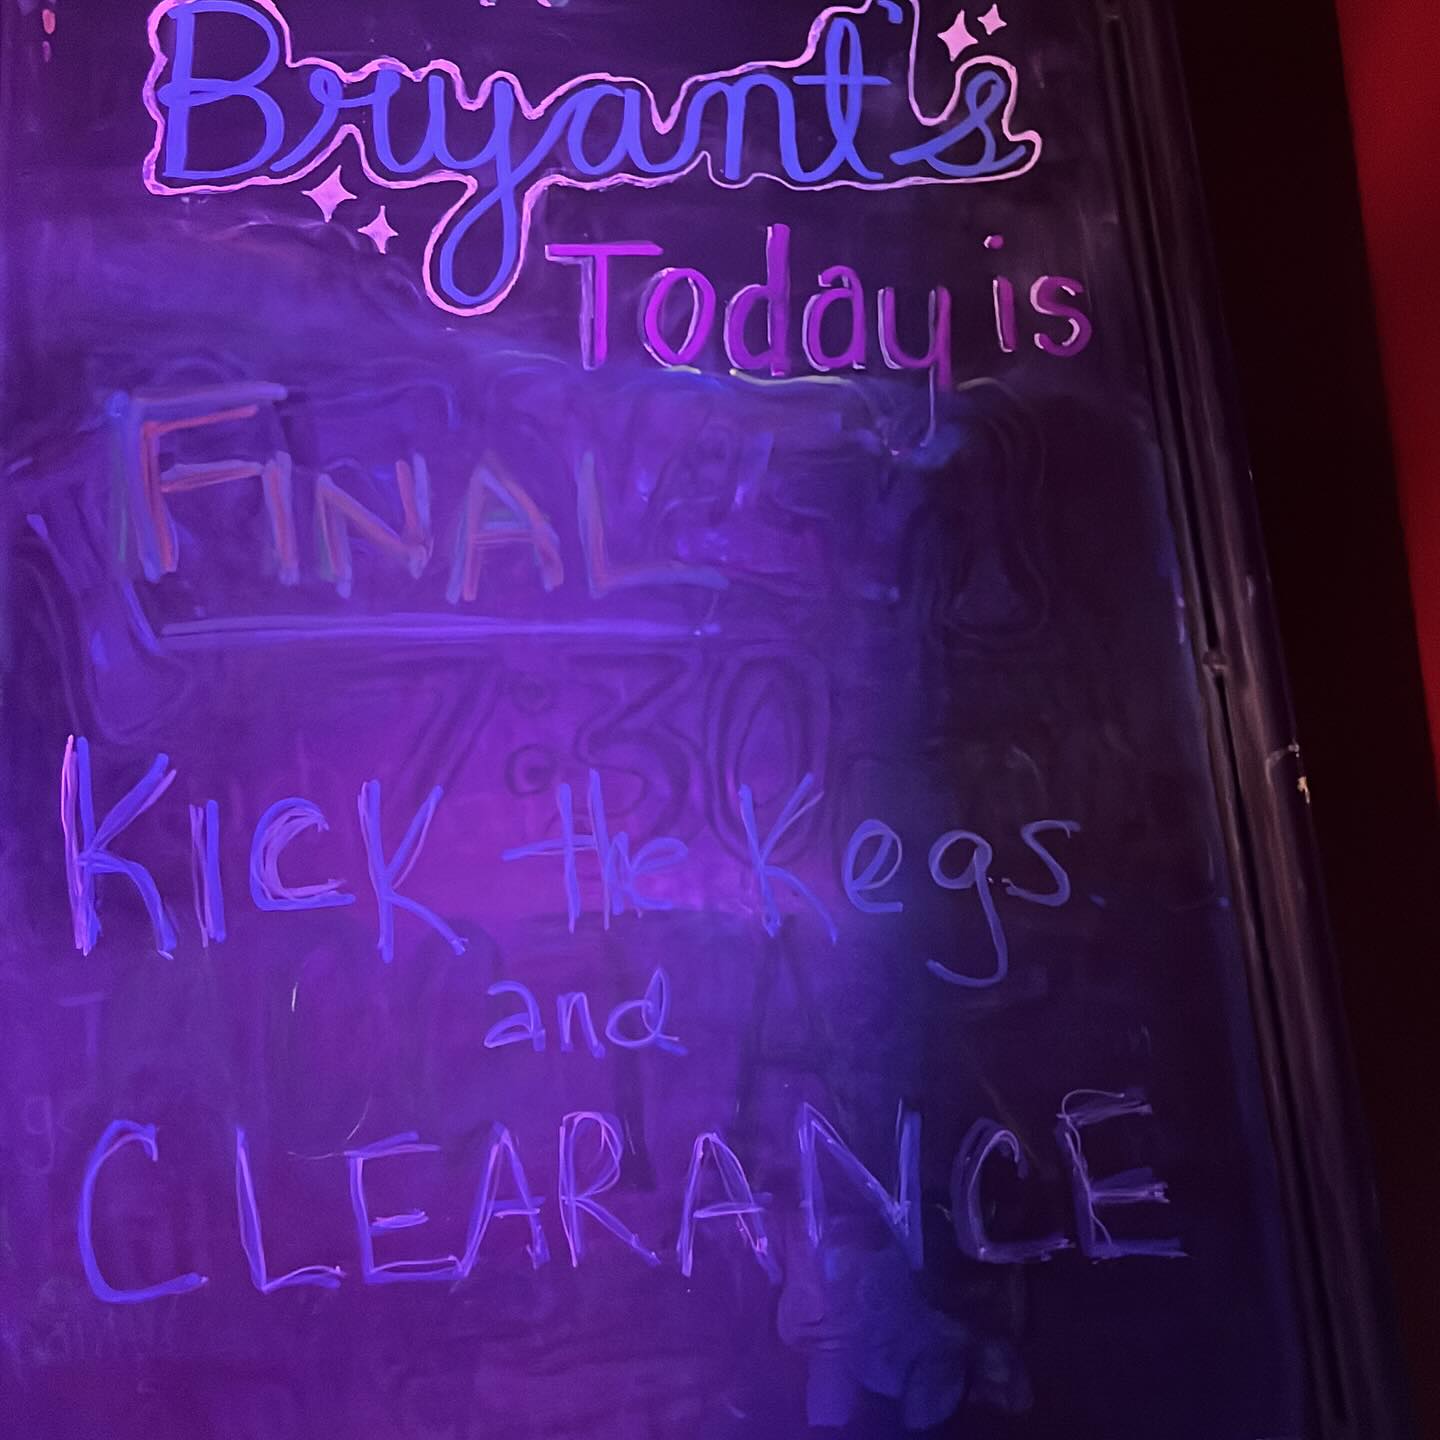 Bryant's
Today is
FINAL
7:30
KICK the Kegs.
and
CLEARANCE